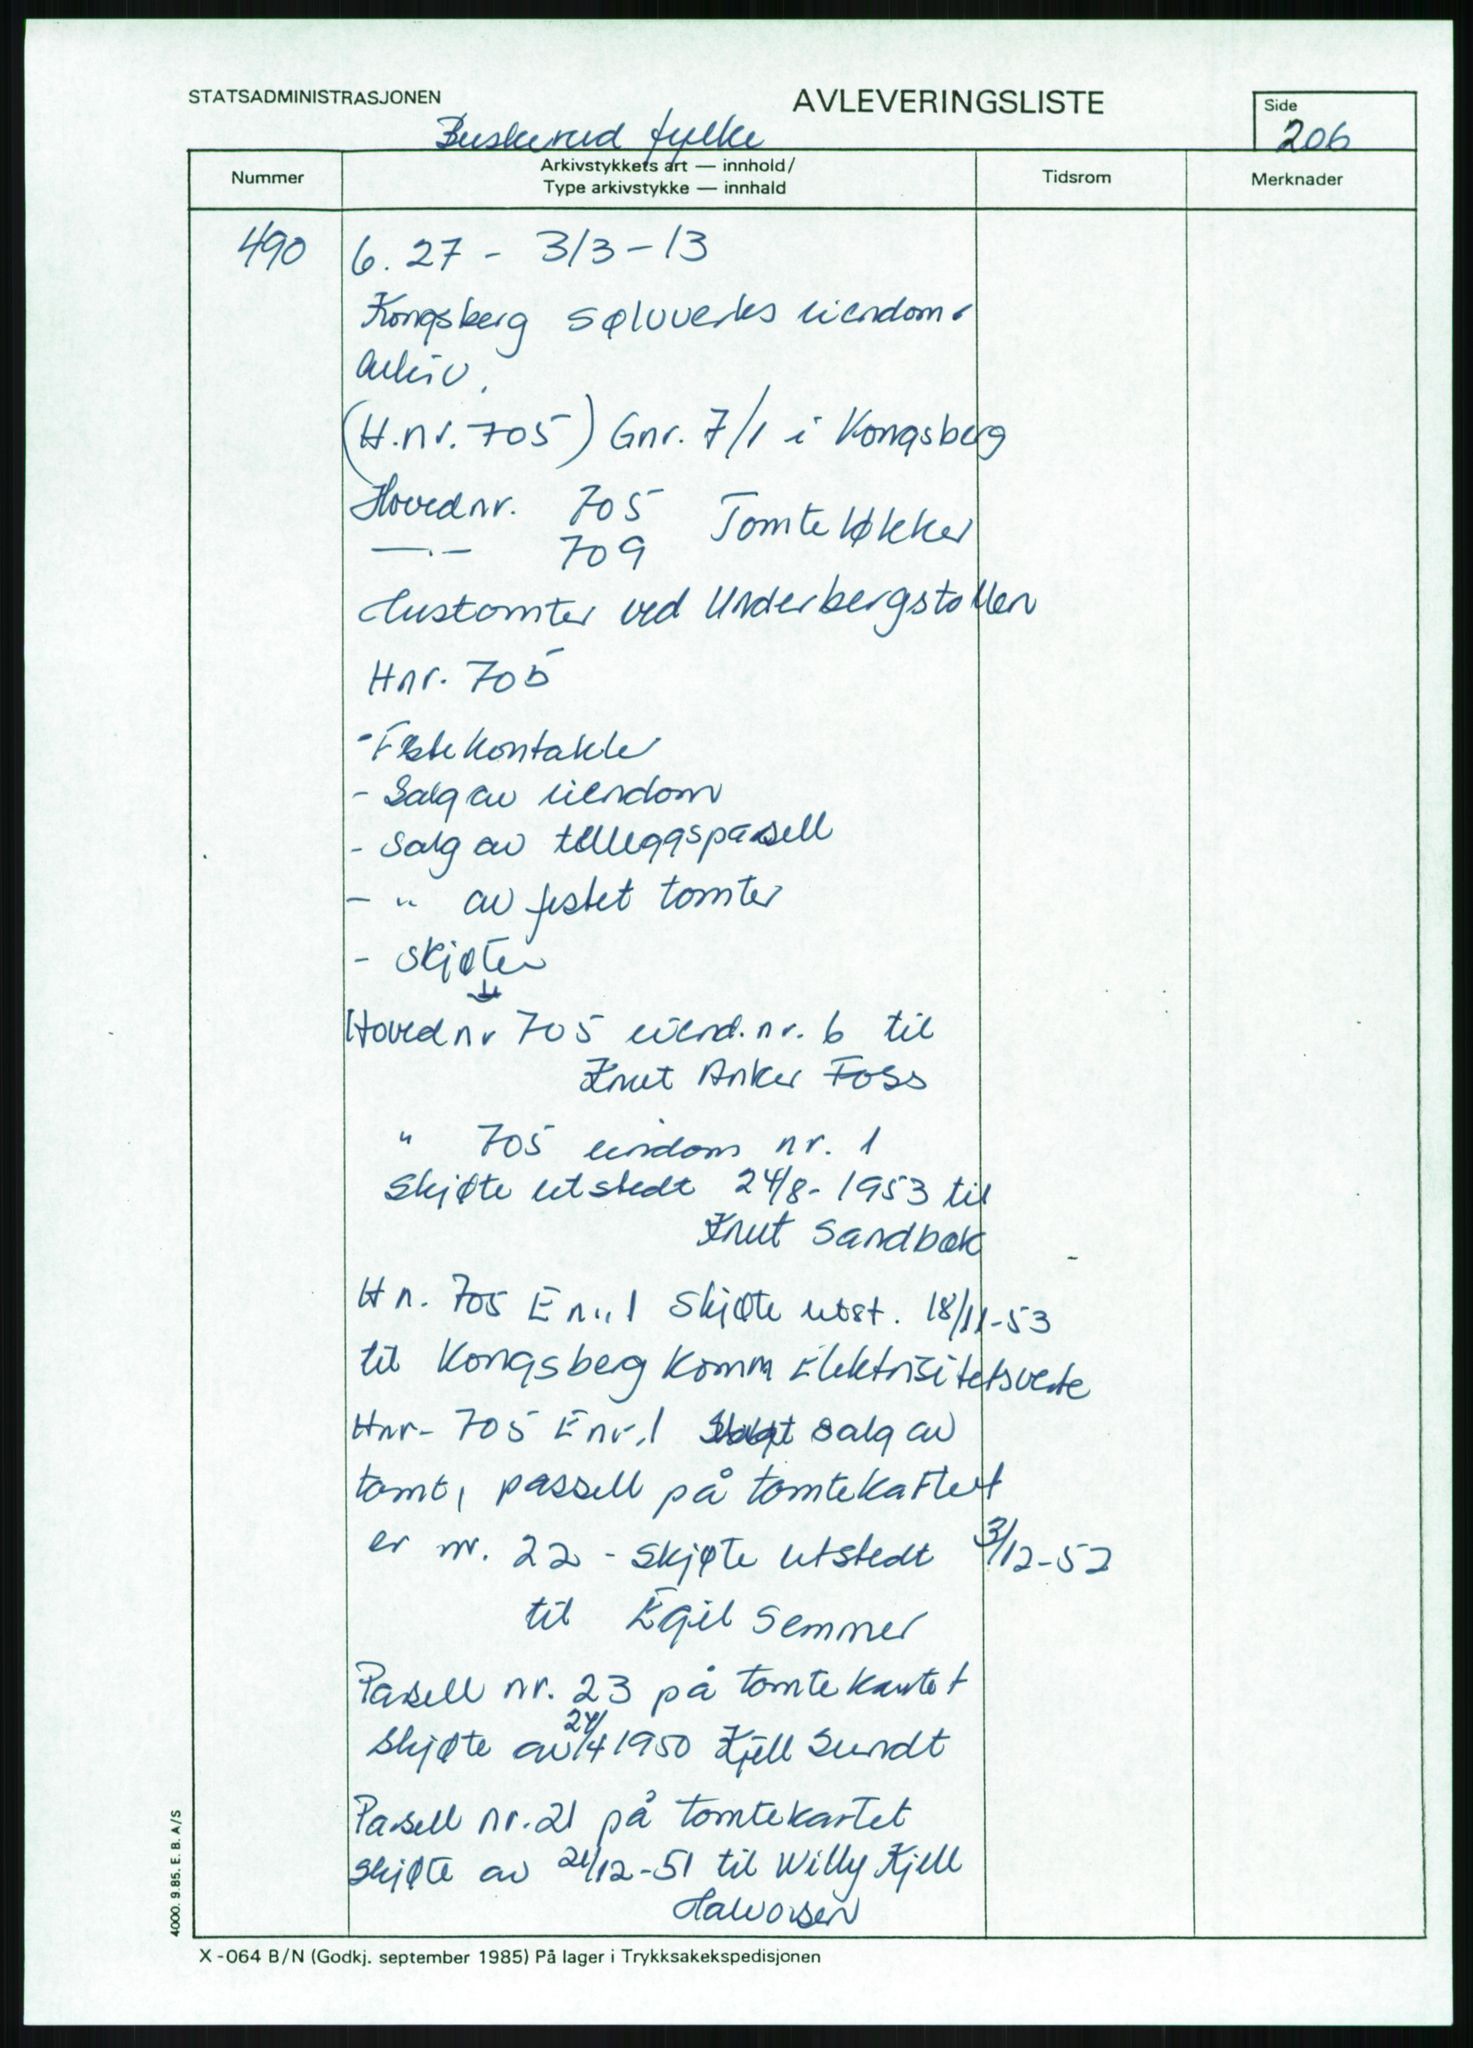 STATSADMINISTRASJONEN
AVLEVERINGSLISTE
Side
206
Buskerud fylke
Nummer
Arkivstykkets art — innhold/
Type arkivstykke — innhald
Tidsrom
Merknader
490
6. 27 - 3/3-13
Kongsberg sølvverks eiendoms
arkiv.
(H.nr. 705) Gnr. 7/1 i Kongsberg
Hovednr. 705 Tomteløkker
—.— 709
Hustomter ved Underbergstollen
Hnr. 705
- Festekontakter
- Salg av eiendom
- Salg av tilleggsparsell
- " av festet tomter
- Skjøter
Hovednr 705 eiend. nr. 6 til
Knut Anker Foss
" 705 eiendom nr. 1
Skjøte utstedt 24/8-1953 til
Knut Sandbæk
Hn. 705 E nr. 1 Skjøte utst. 18/11-53
til Kongsberg Komm Elektrisitetsverk
Hnr- 705 Enr. 1 salg av
tomt, passell på tomtekartet
er nr. 22 - Skjøte utstedt 3/12-52
til Egil Semmer
Parsell nr. 23 på tomtekartet
Skjøte av 24/4 1950 Kjell Sundt
Parsell nr. 21 på tomtekartet
skjøte av 21/12-51 til Willy Kjell
Halvorsen
4000. 9.85. E. B. A/S
X-064 B/N (Godkj. september 1985) På lager i Trykksakekspedisjonen